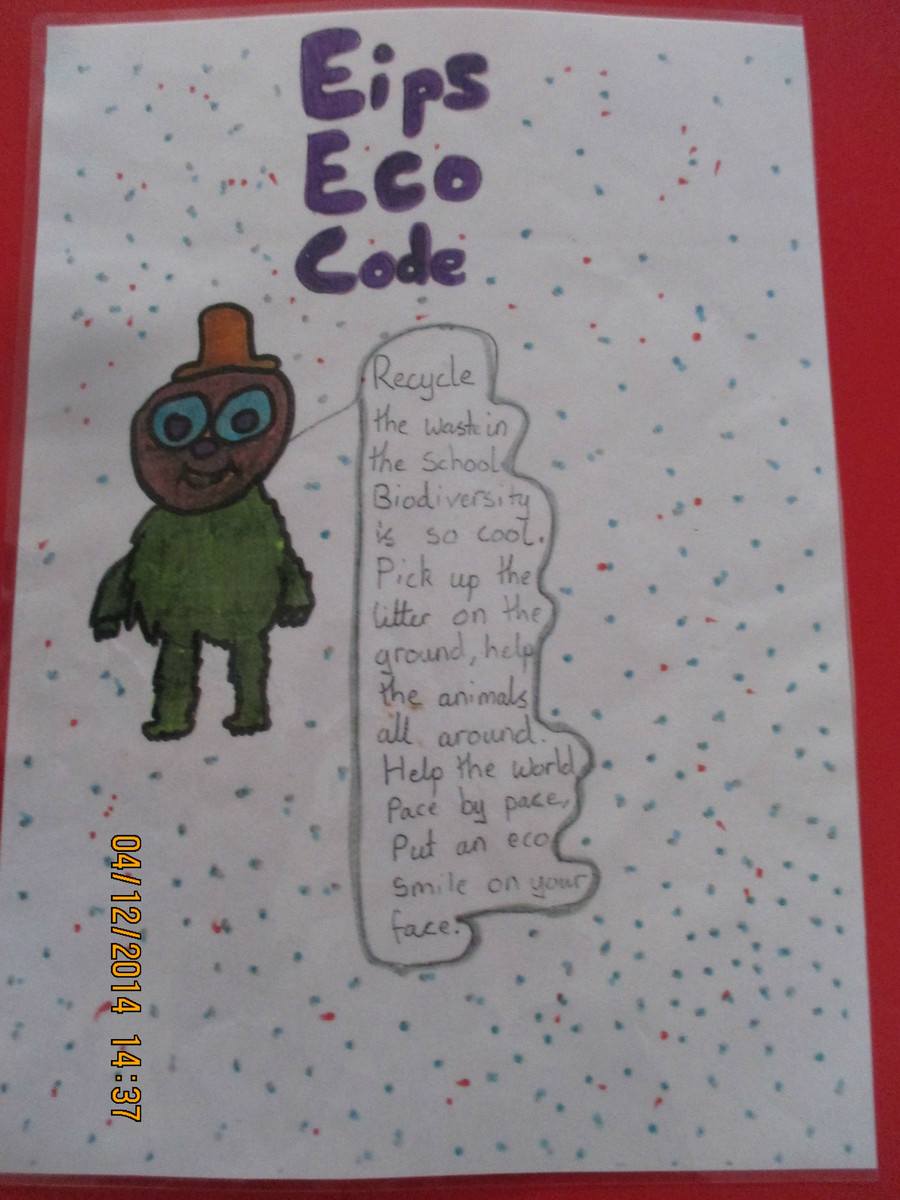 Eips
Eco
Code
Recycle
the waste in
the School
Biodiversity
is so cool.
Pick up the
litter on the
ground, help
the animals
all around.
Help the world
Pace by pace,
Put an eco
smile on your
face.
04/12/2014 14:37